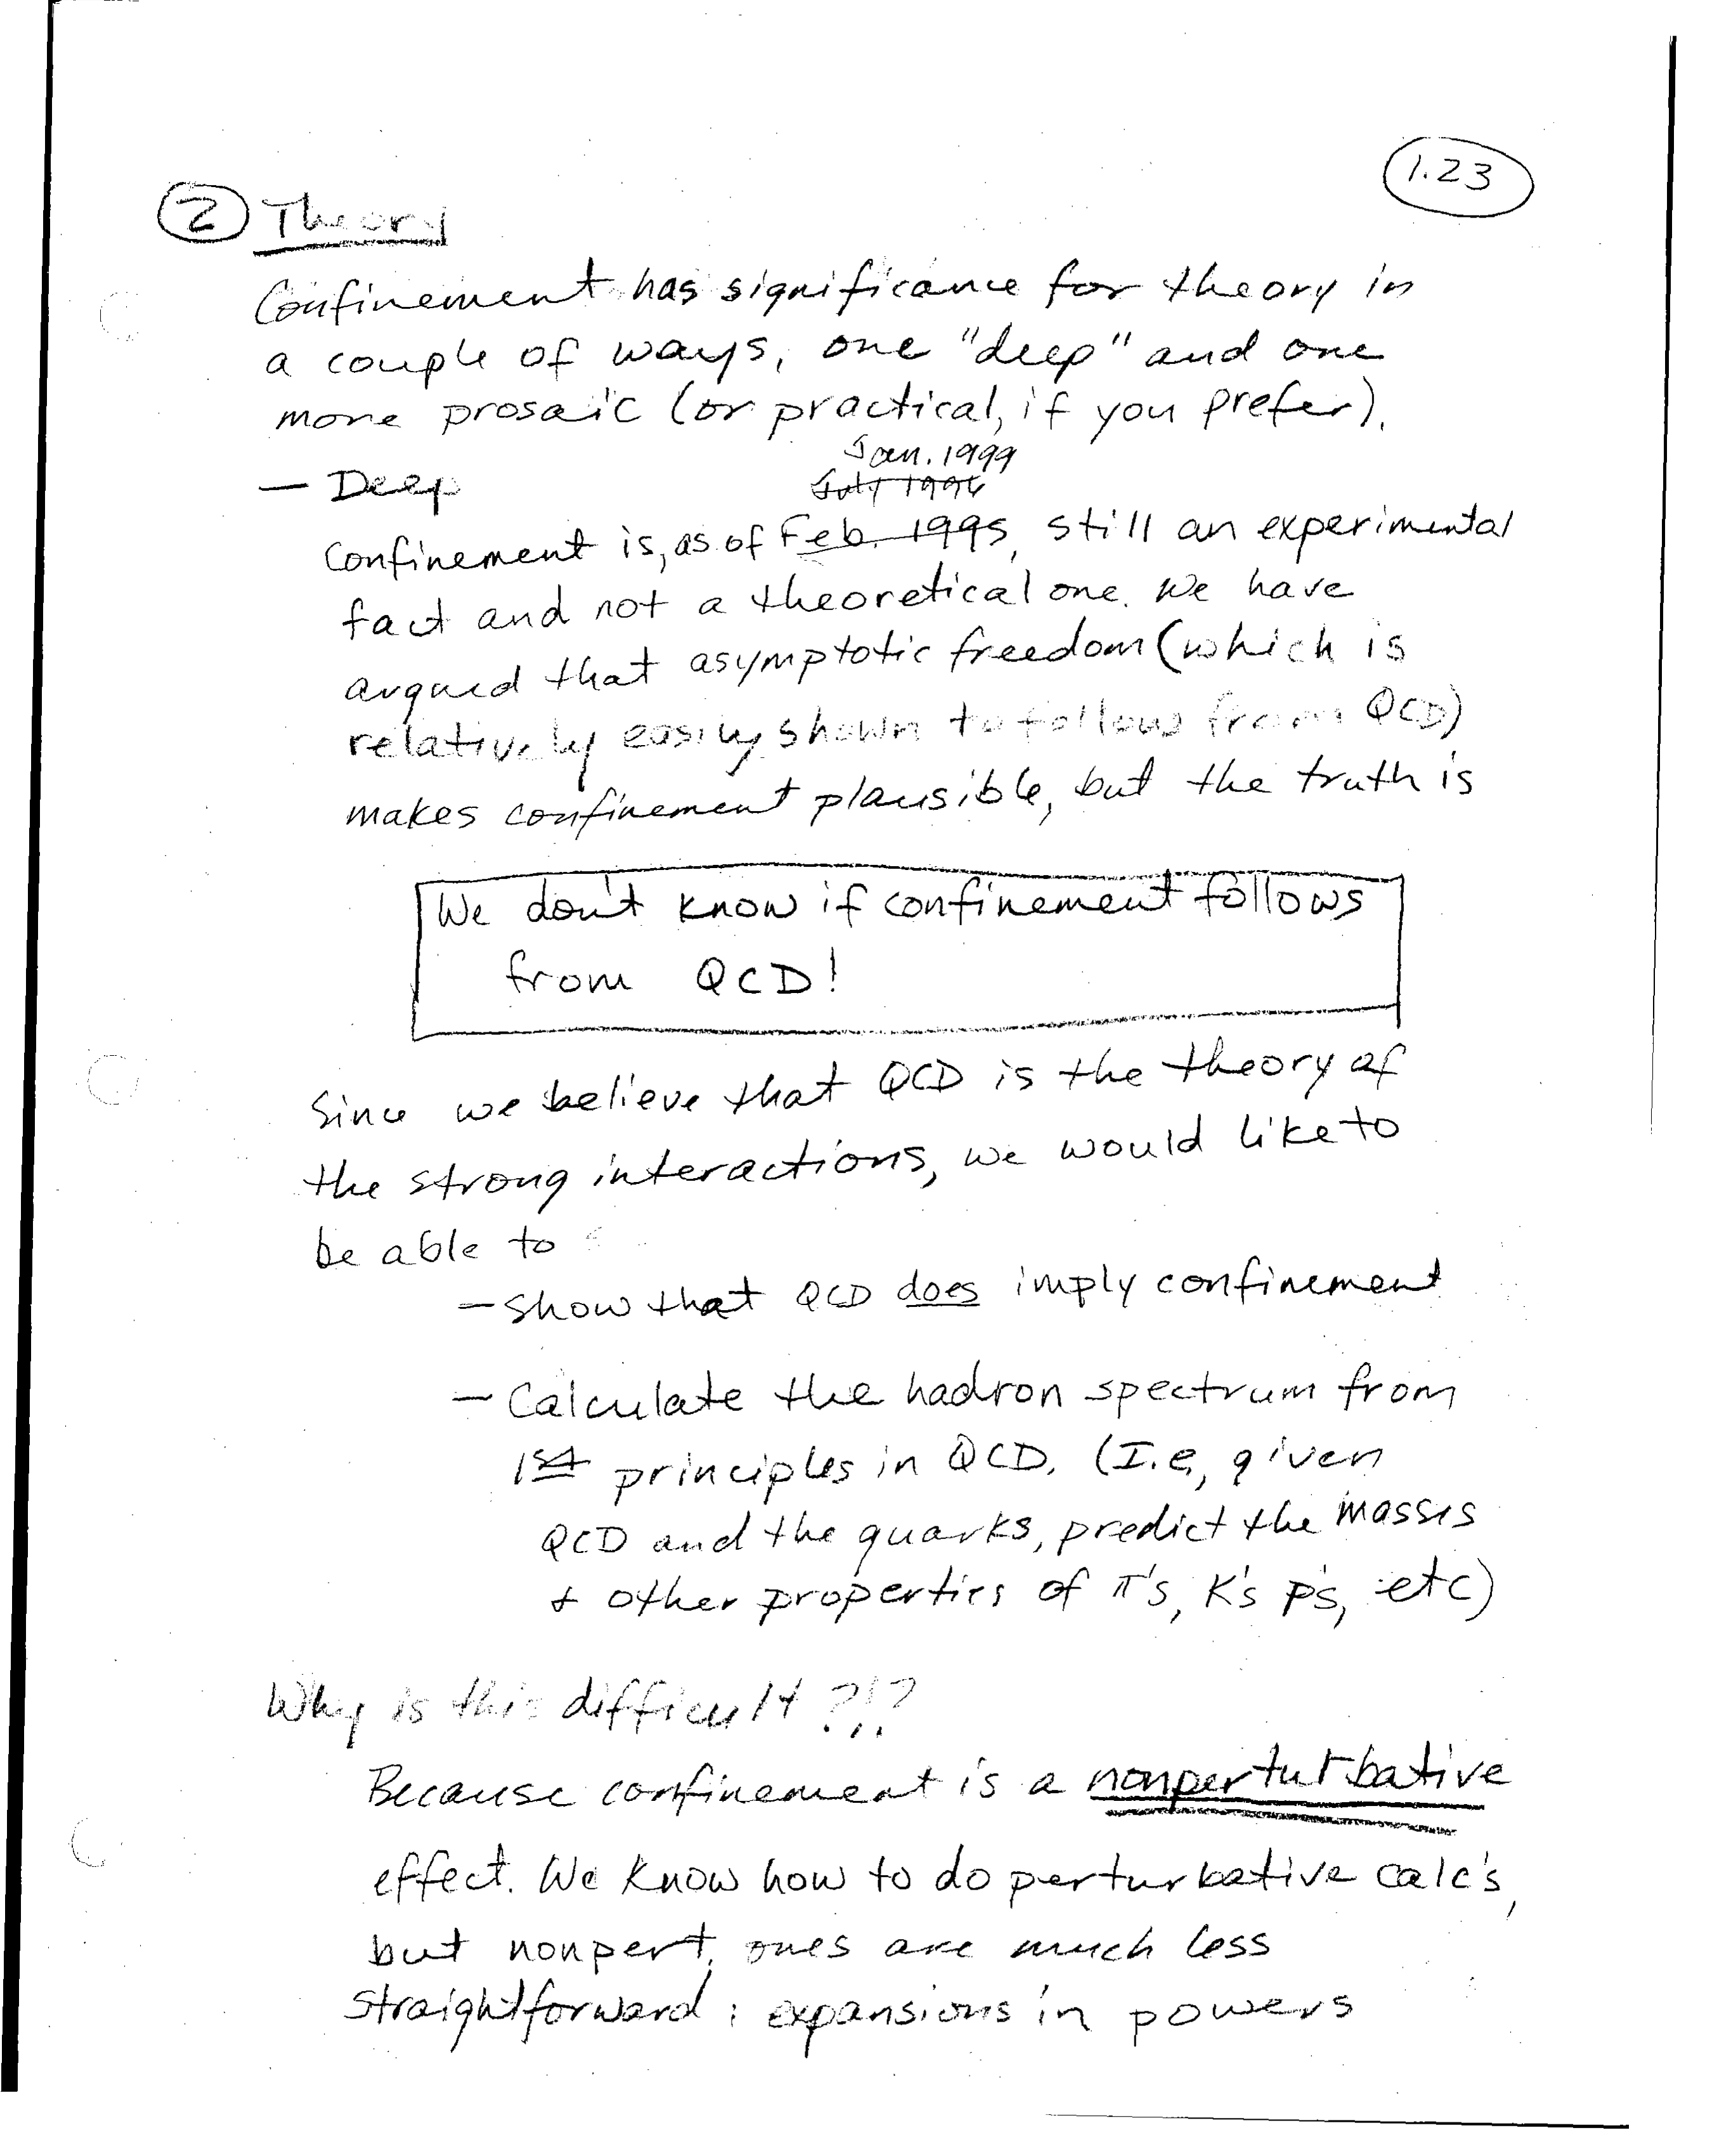 1.23
② Theory
Confinement has significance for theory in
a couple of ways, one "deep" and one
more prosaic (or practical, if you prefer).
Jan. 1999
— Deep July 1996
Confinement is, as of Feb. 1995, still an experimental
fact and not a theoretical one. We have
argued that asymptotic freedom (which is
relatively easily shown to follow from QCD)
makes confinement plausible, but the truth is
We don't know if confinement follows
from QCD!
Since we believe that QCD is the theory of
the strong interactions, we would like to
be able to
— show that QCD does imply confinement
— Calculate the hadron spectrum from
1st principles in QCD. (I.e, given
QCD and the quarks, predict the masses
+ other properties of π's, K's p's, etc)
Why is this difficult ?!?
Because confinement is a nonperturbative
effect. We know how to do perturbative calc's,
but nonpert. ones are much less
straightforward: expansions in powers